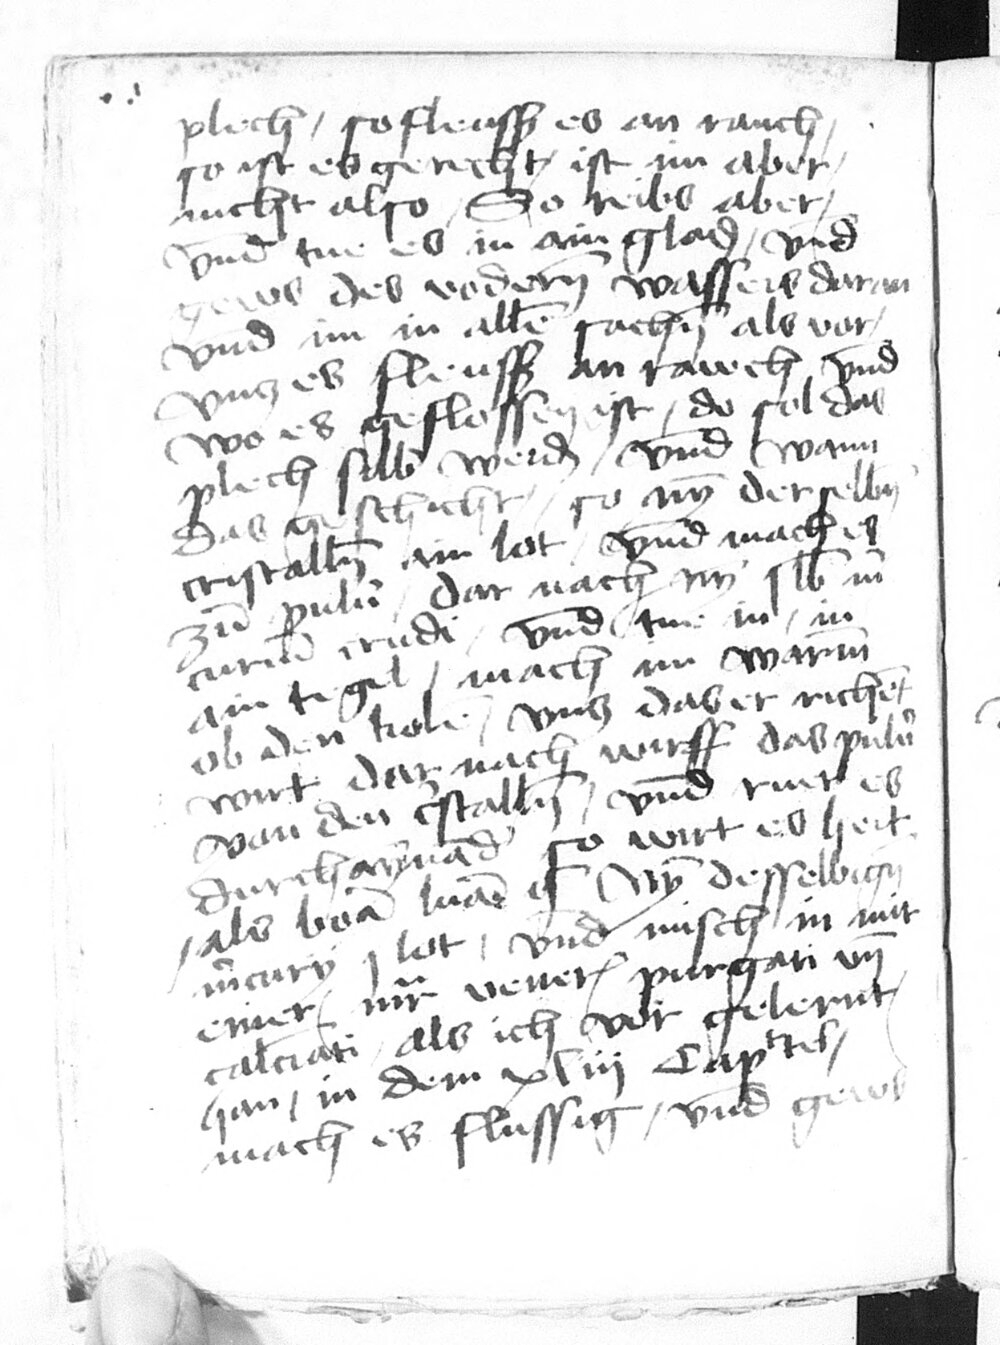 plech / so fleusß es an rauch /
so ist es gerecht / ist im aber /
nicht also / So reibs aber /
vnd tue es in ain glas / vnd
gews des vodern wassers daran
vnd im in alle sachn als vor /
vntz es fleusß an rauch vnd
wo es geflossen ist / do sol das
plech silb werdn / vnd wann
das geschicht / so nym der selbn
cristalln ain lot / vnd mach es
zu pulu / dar nach nym slb m
curiu crudi / vnd tue in / in
ain tegel / mach im warm
ob den kole / vntz das er richet
wirt dar nach wirff das pulu
van den cstalln / vnd ruer es
durch aynad so wirt es hert
/ als lot / vnd misch in mit
einer mr vener purgati vn
calciati / als ich vor gelernt
han / in dem xliij Captel /
mach es flussig / vnd gews